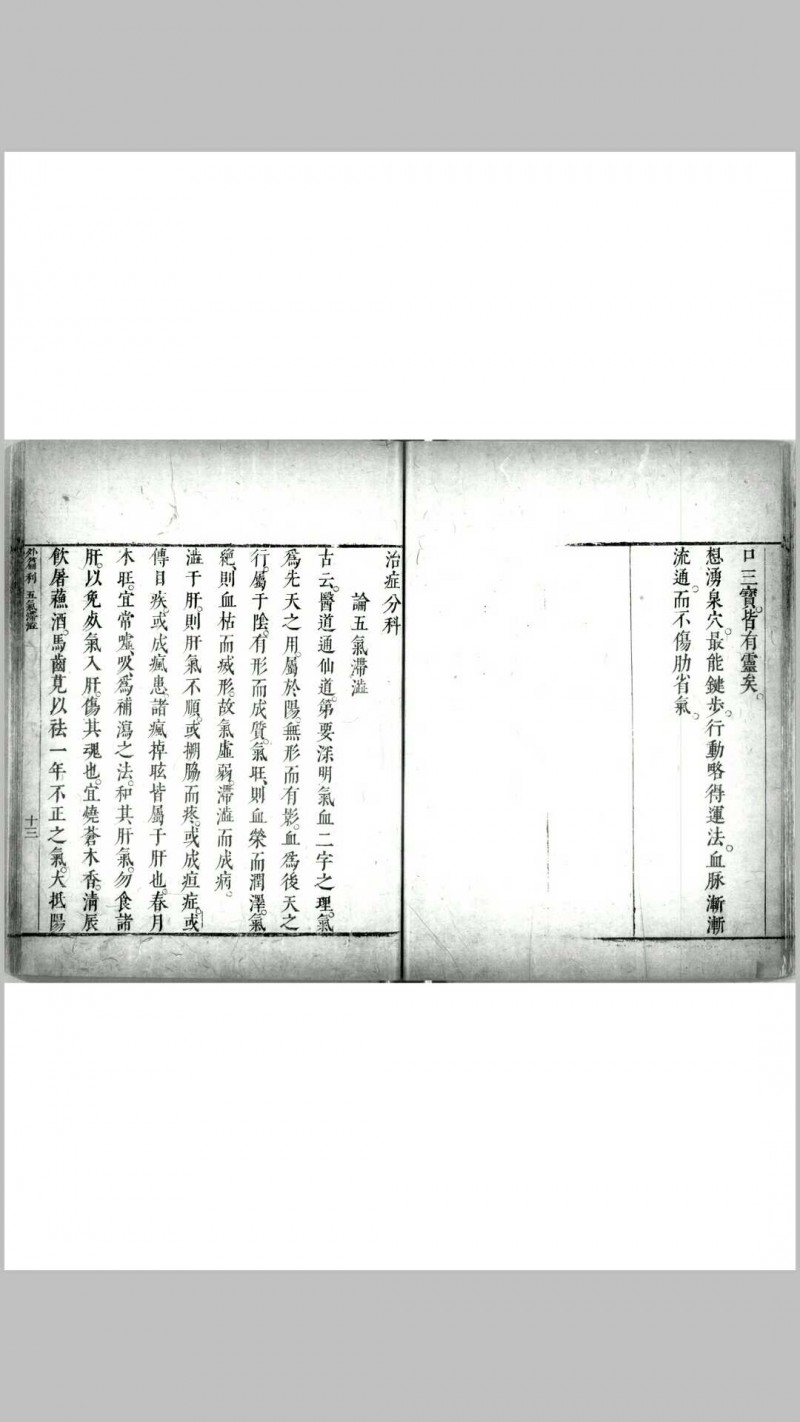 口三寶。皆有靈矣。
想湧泉穴。最能鍵步。行動略得運法。血脉漸漸
流通。而不傷肋省氣。
治症分科
論五氣滯澁
古云。醫道通仙道。第要深明氣血二字之理。氣
爲先天之用。屬於陽。無形而有影。血爲後天之
行。屬于陰。有形而成質。氣旺。則血榮而潤澤。氣
絕。則血枯而滅形。故氣虛弱。滯澁而成病。
澁于肝。則肝氣不順。或捆脇而疼。或成疸症。或
傳目疾。或成瘋患。諸瘋掉眩皆屬于肝也。春月
木旺。宜常噓吸。爲補瀉之法。和其肝氣。勿食諸
肝。以免处氣入肝。傷其魂也。宜燒蒼木香。清辰
飲屠蘓酒。馬齒莧以祛一年不正之氣。大抵陽
外篇利 五氣滯澁 十三